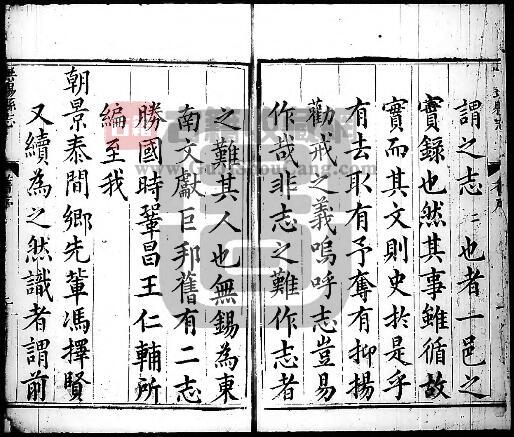 謂之志〻也者一邑之
實録也然其事雖循故
實而其文則史於是乎
有去取有予奪有抑揚
勸戒之義嗚呼志豈易
作哉非志之難作志者
之難其人也無錫為東
南文獻巨邦舊有二志
勝國時鞏昌王仁輔所
編至我
朝景泰間鄉先輩馮擇賢
又續為之然識者謂前
無錫縣志